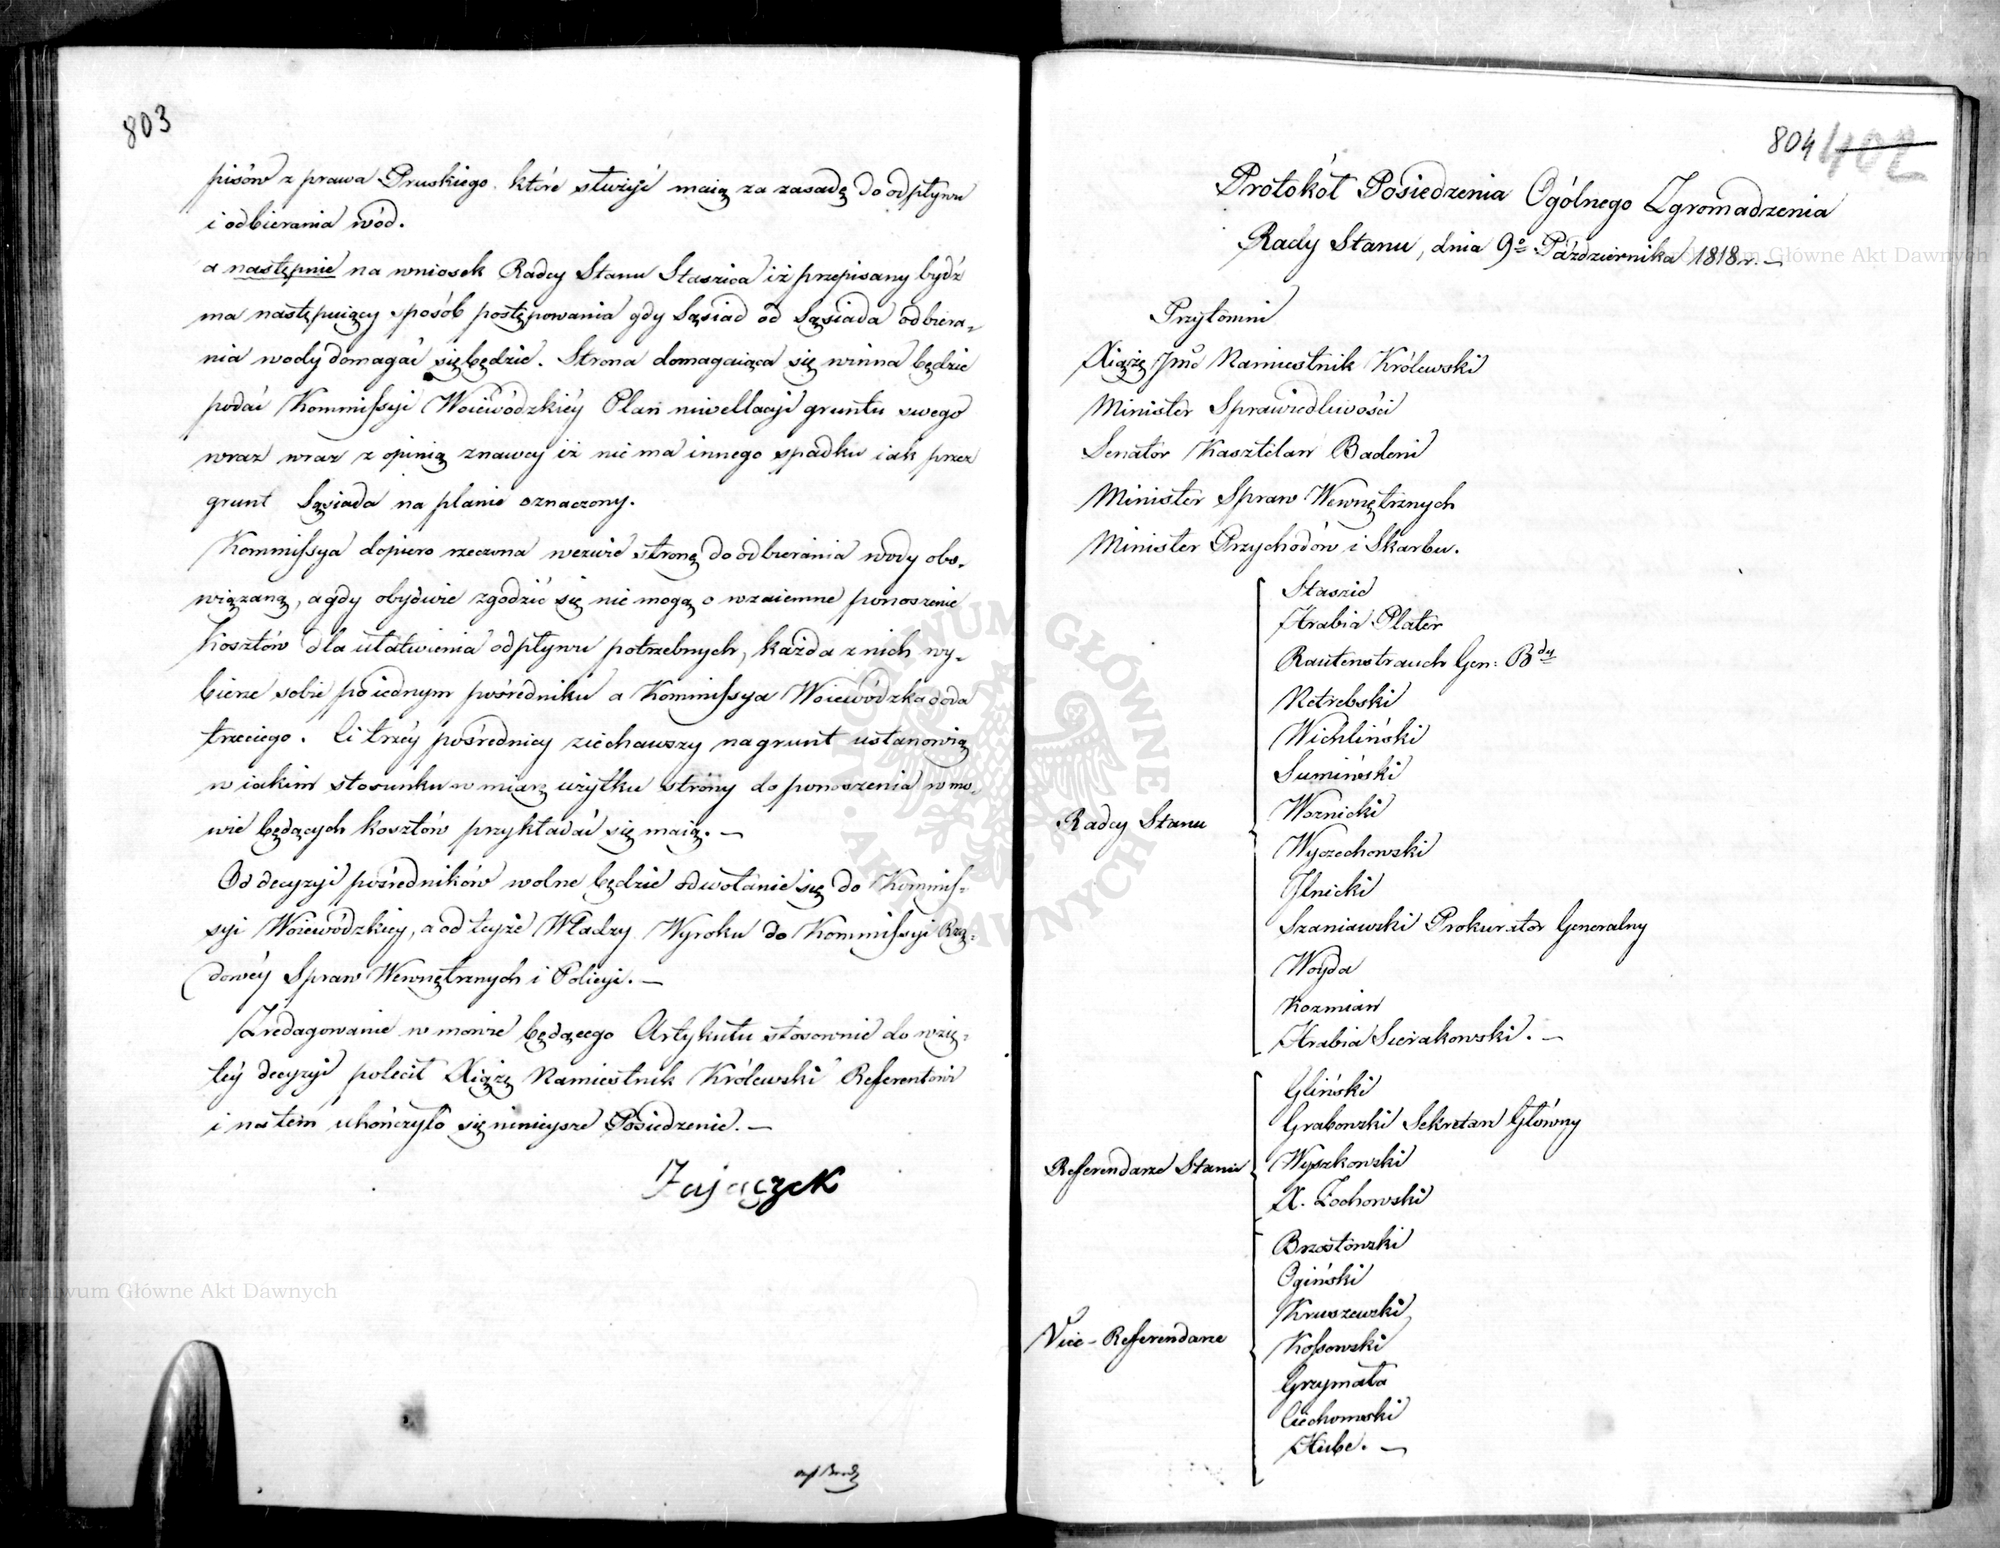 803
pisów z prawa Pruskiego które służyć maią za zasadę do odpływu
i odbierania wód.
a następnie na wniosek Radcy Stanu Staszica iż przepisany bydź
ma następuiący sposób postępowania gdy Sąsiad od Sąsiada odbiera-
nia wody domagać się będzie. Strona domagaiąca się winna będzie
podać Kommissyi Woiewódzkiéy Plan niwellacyi gruntu swego
wraz wraz z opinią znawcy iż nie ma innego spadku iak przez
grunt Sąsiada na planie oznaczony.
Kommissya dopiero rzeczona wezwie stronę do odbierania wody obo-
wiązaną, a gdy obydwie zgodzić się nie mogą o wzaiemne ponoszenie
kosztów dla ułatwienia odpływu potrzebnych, każda z nich wy-
bierze sobie po iednym pośredniku a Kommissya Woiewódzka doda
trzeciego. Ci trzéy pośrednicy ziechawszy na grunt ustanowią
w iakim stosunku w miarę użytku strony do ponoszenia w mo-
wie będących kosztów przykładać się maią. —
Od decyzyi pośredników wolne będzie odwołanie się do Kommis-
syi Woiewódzkiey, a od teyże Władzy Wyroku do Kommissyi Rzą-
dowéy Spraw Wewnętrznych i Policyi. —
Zredagowanie w mowie będącego Artykułu stosownie do wzię-
téy decyzyi polecił Xiążę Namiestnik Królewski Referentowi
i na tém ukończyło się ninieysze Posiedzenie. —
Zajączek
804 402
Protokół Posiedzenia Ogólnego Zgromadzenia
Rady Stanu, dnia 9º Października 1818 r. —
Przytomni
Xiążę Jmć Namiestnik Królewski
Minister Sprawiedliwości
Senator Kasztelan Badeni
Minister Spraw Wewnętrznych
Minister Przychodów i Skarbu.
Radcy Stanu
Staszic
Hrabia Plater
Rautenstrauch Gen: Bdy
Netrebski
Wichliński
Sumiński
Woznicki
Wyczechowski
Ilnicki
Szaniawski Prokurator Generalny
Woyda
Kozmian
Hrabia Sierakowski. —
Referendarze Stanu
Gliński
Grabowski Sekretarz Główny
Wyszkowski
X. Żochowski
Vice-Referendarze
Brzostowski
Ogiński
Kruszewski
Kossowski
Grzymała
Ciechomski
Hube. —
Archiwum Główne Akt Dawnych
Archiwum Główne Akt Dawnych
ARCHIWUM GŁÓWNE AKT DAWNYCH